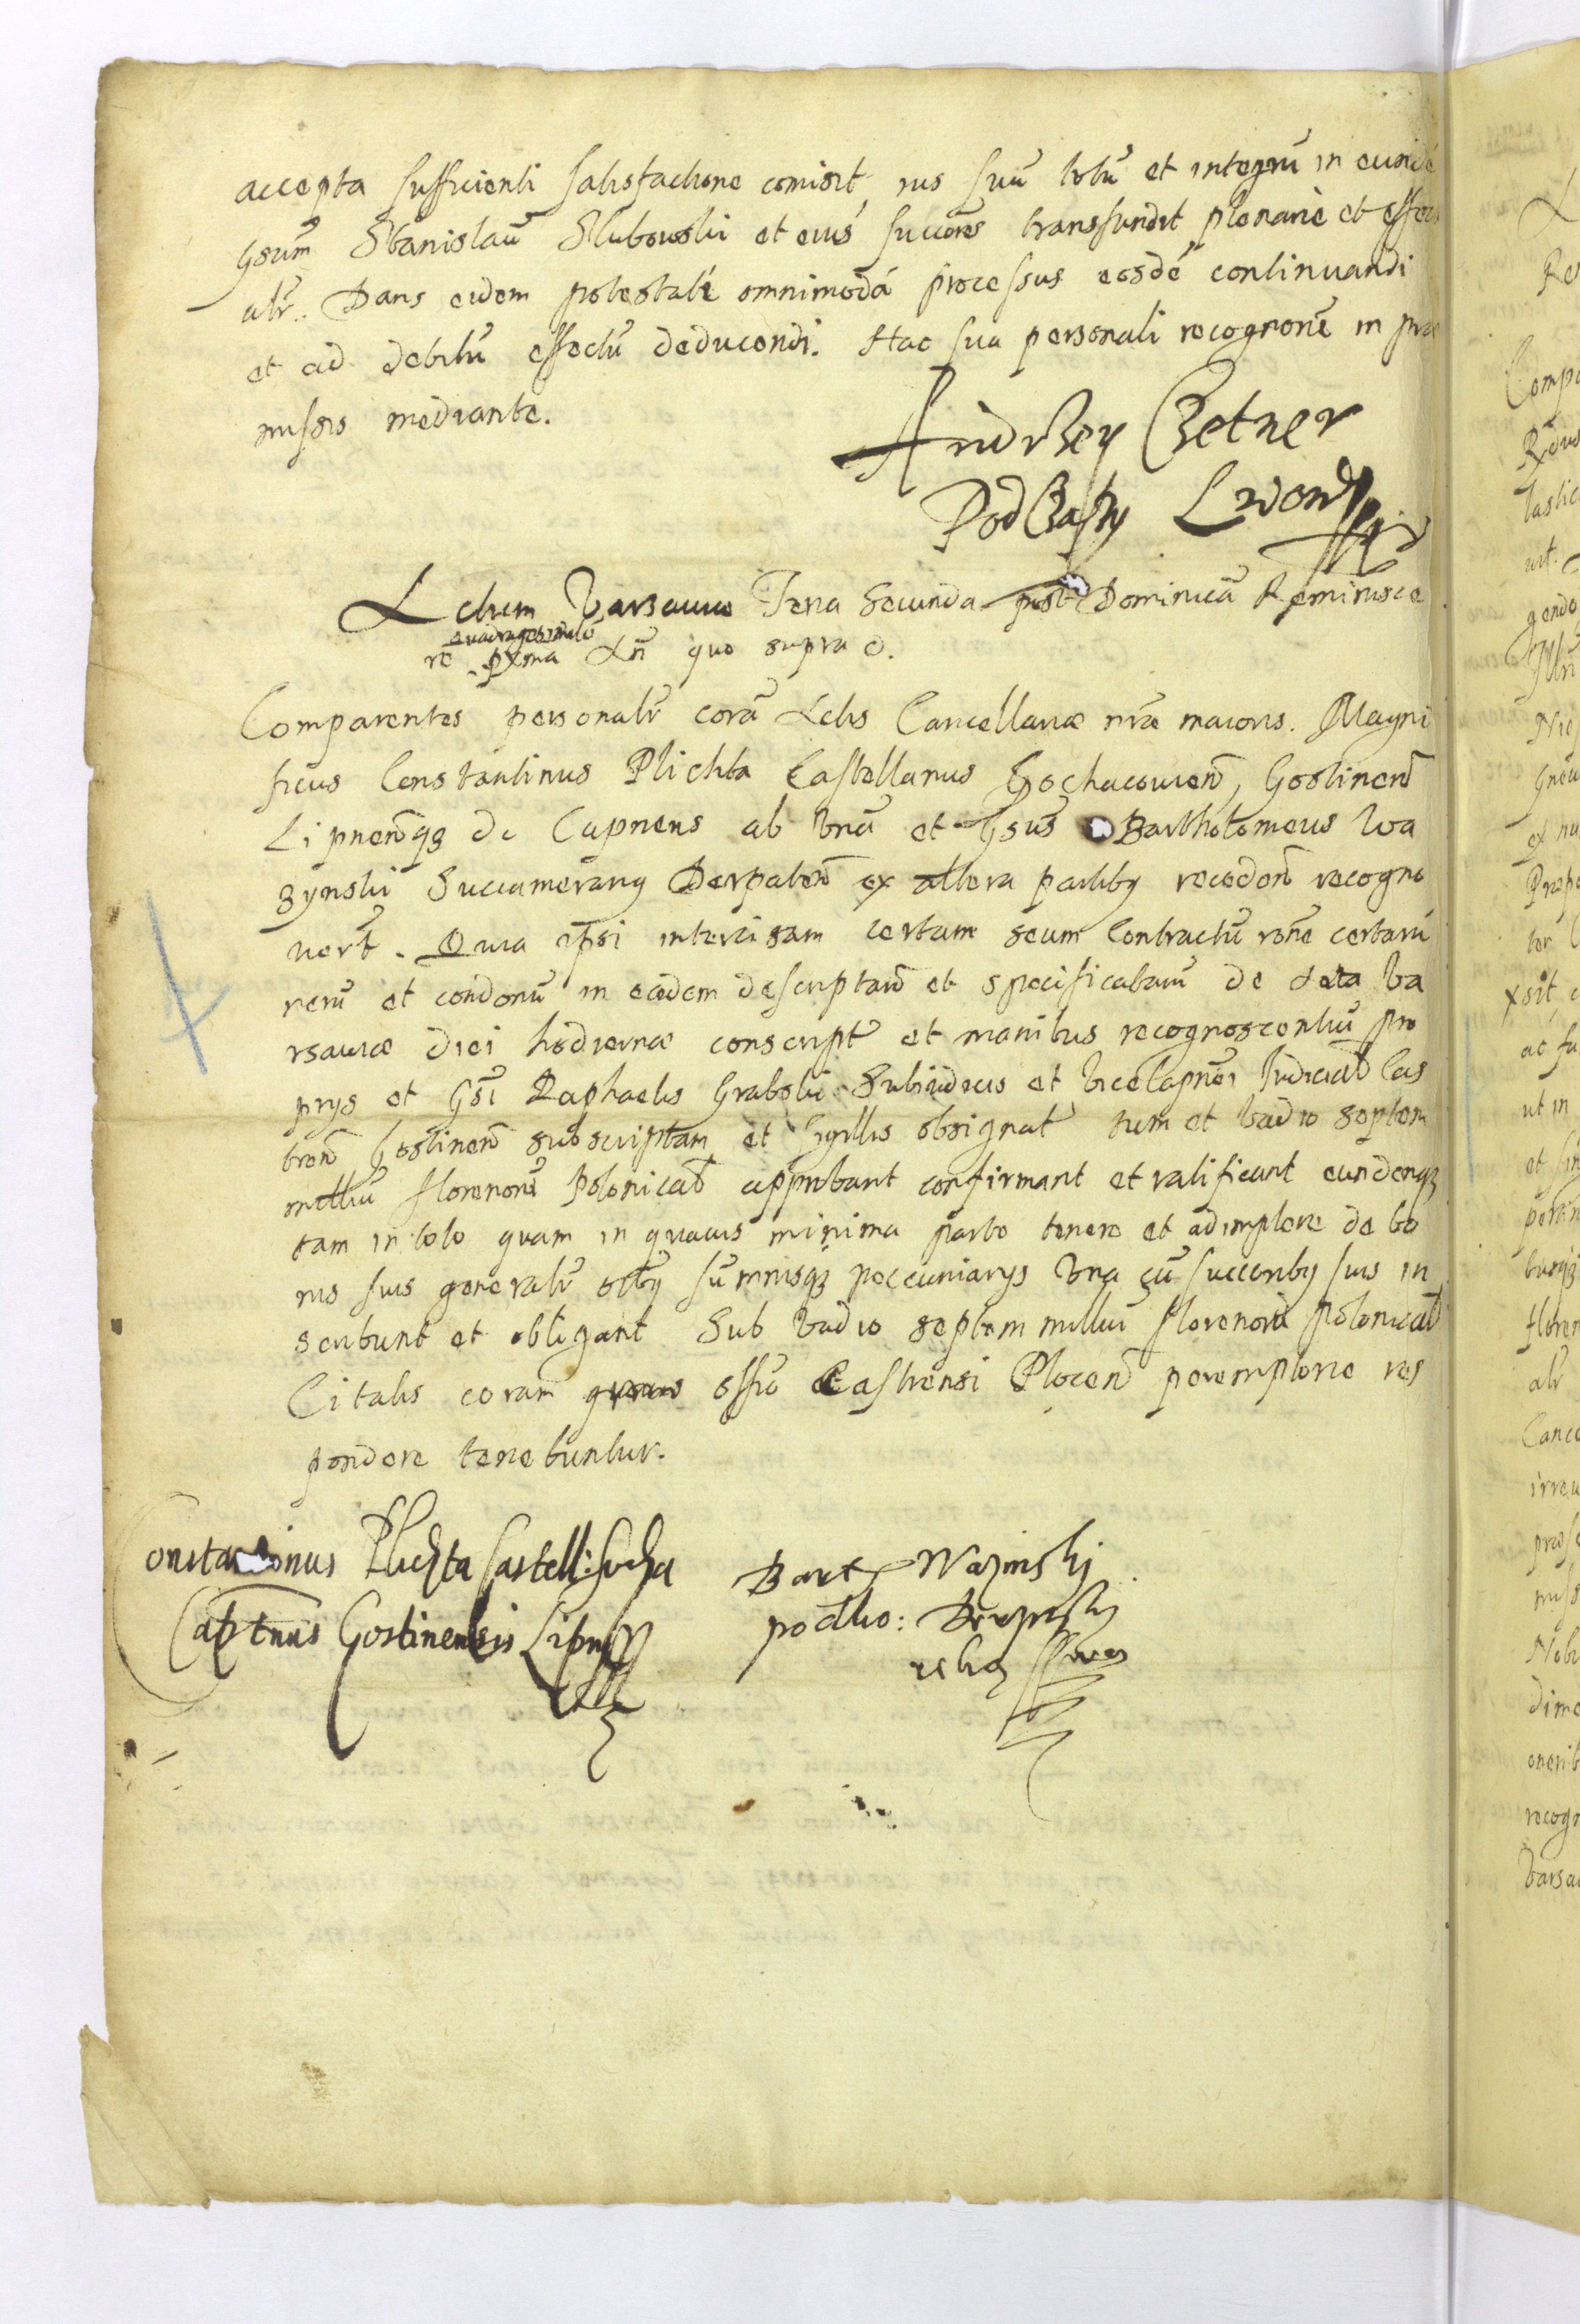 accepta sufficienti satisfactione comisit, ius suū totū et integrū in eundē
Gsum̄ Stanislaū Slubowski et eius succores transfundit plenariè et effectu
alr̄. Dans eidem potestatē omnimodā processus eosdē continuandi
et ad debitū effectū deducendi. Hac sua personali recognone in præ
missis mediante.
Andrzey Czetner
Podczaszy Lwowsky
Actum Varsauiæ Feria Secunda post Dominicā Reminisce
quadragesimale
re pxima An̄ quo supra
Comparentes personalr̄ corā Actis Cancellariæ nr̄æ maioris. Magni
ficus Constantinus Plichta Castellanus Sochacouien̄, Gostinen̄
Lipnen̄qз Capneus ab vna et Gsus Bartholomeus Wa
zynski Succamerarius Derpaten̄ ex altera partibꝫ recedon̄ recogno
uert̄. Quia ipsi intercisam certam seum Contractū rōne certarū
rerū et condonū in eadem descriptarū et specificatarū de data Va
rsauiæ diei hodiernæ conscript̄ et manibus recognoscentiū pro
prijs et Gsi Raphaelis Grabski Subiudicis et Vicecapnei Judiciał Cas
tren̄ Gostinen̄ subscriptam et sigillis obsignat̄ tum et vadio septem
milliū florenorū Polonicał approbant confirmant et ratificant eundemqз
tam in toto quam in quauis minima parte tenere et adimplere de bo
nis suis generalr̄ oībꝫ sūmmisqз pecuniarijs vna cū succoribꝫ suis in
scribunt et obligant Sub vadio septem milliū florenorū Polonicał
Citatis coram offō Castrensi Plocen̄ peremptorie res
pondere tenebuntur.
Constantinus Plichta Castell: Socha
Captnus Gostinensis Lipn
Bart Wazinski
podko: Derpsky
ręką swą